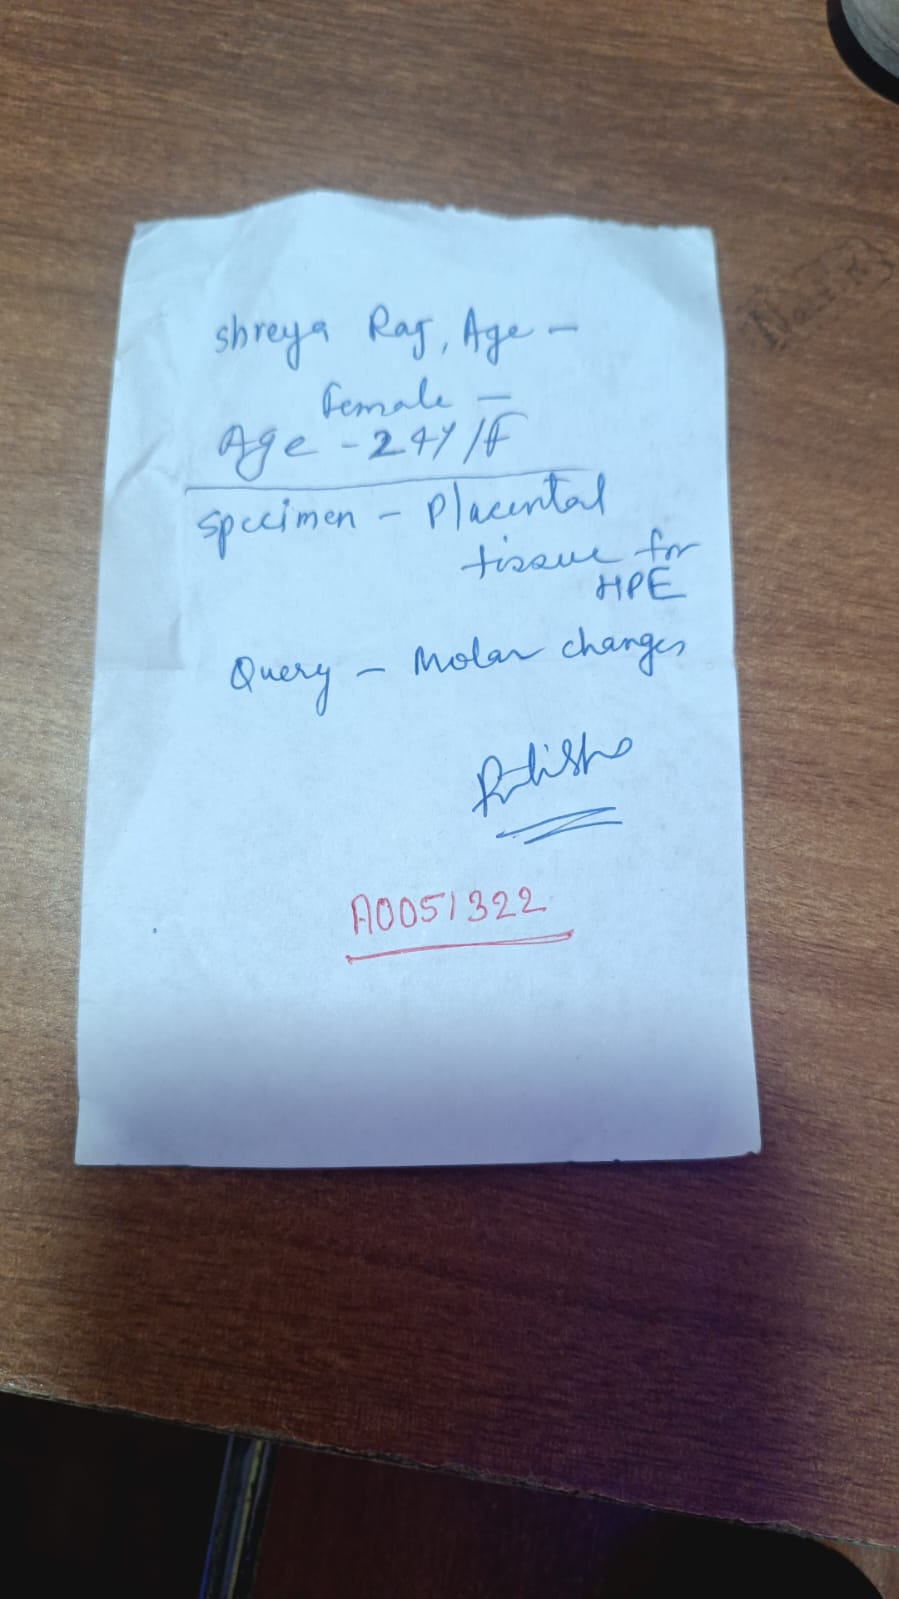 Shreya Raj, Age –
Female –
Age - 24Y/F
Specimen - Placental
tissue for
HPE
Query - Molar changes
A0051322